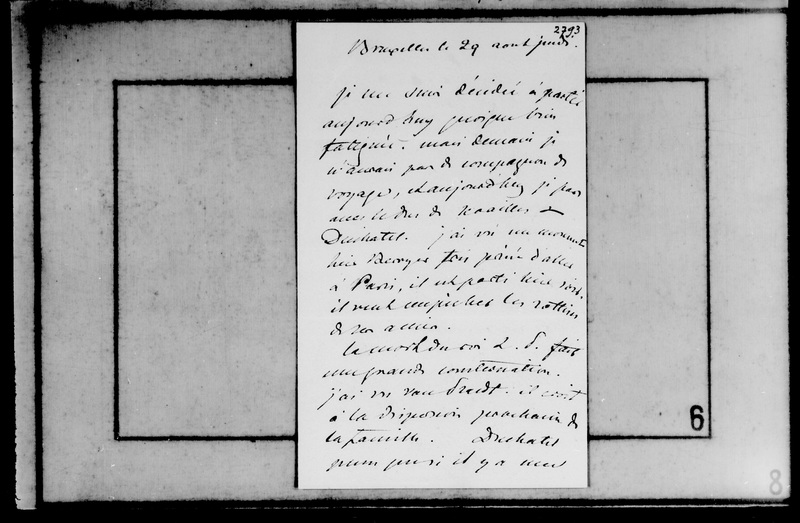 2793
Bruxelles le 29 aout jeudi.
je me suis décidée à partir
aujourd'huy quoique bien
fatiguée. mais demain je
n'aurais pas de compagnon de
voyage, et aujourd'huy je pars
avec le duc de Noailles &
Duchatel. j'ai vu un moment
hier George fois prié d'aller
à Paris, il est parti hier soir.
il veut empêcher les sottises
de ses amis.
la mort du roi L. P. fait
une grande consternation.
j'ai vu Van Praet. il croit
à la dispersion prochaine de
la famille. Duchatel
il y a
6
8